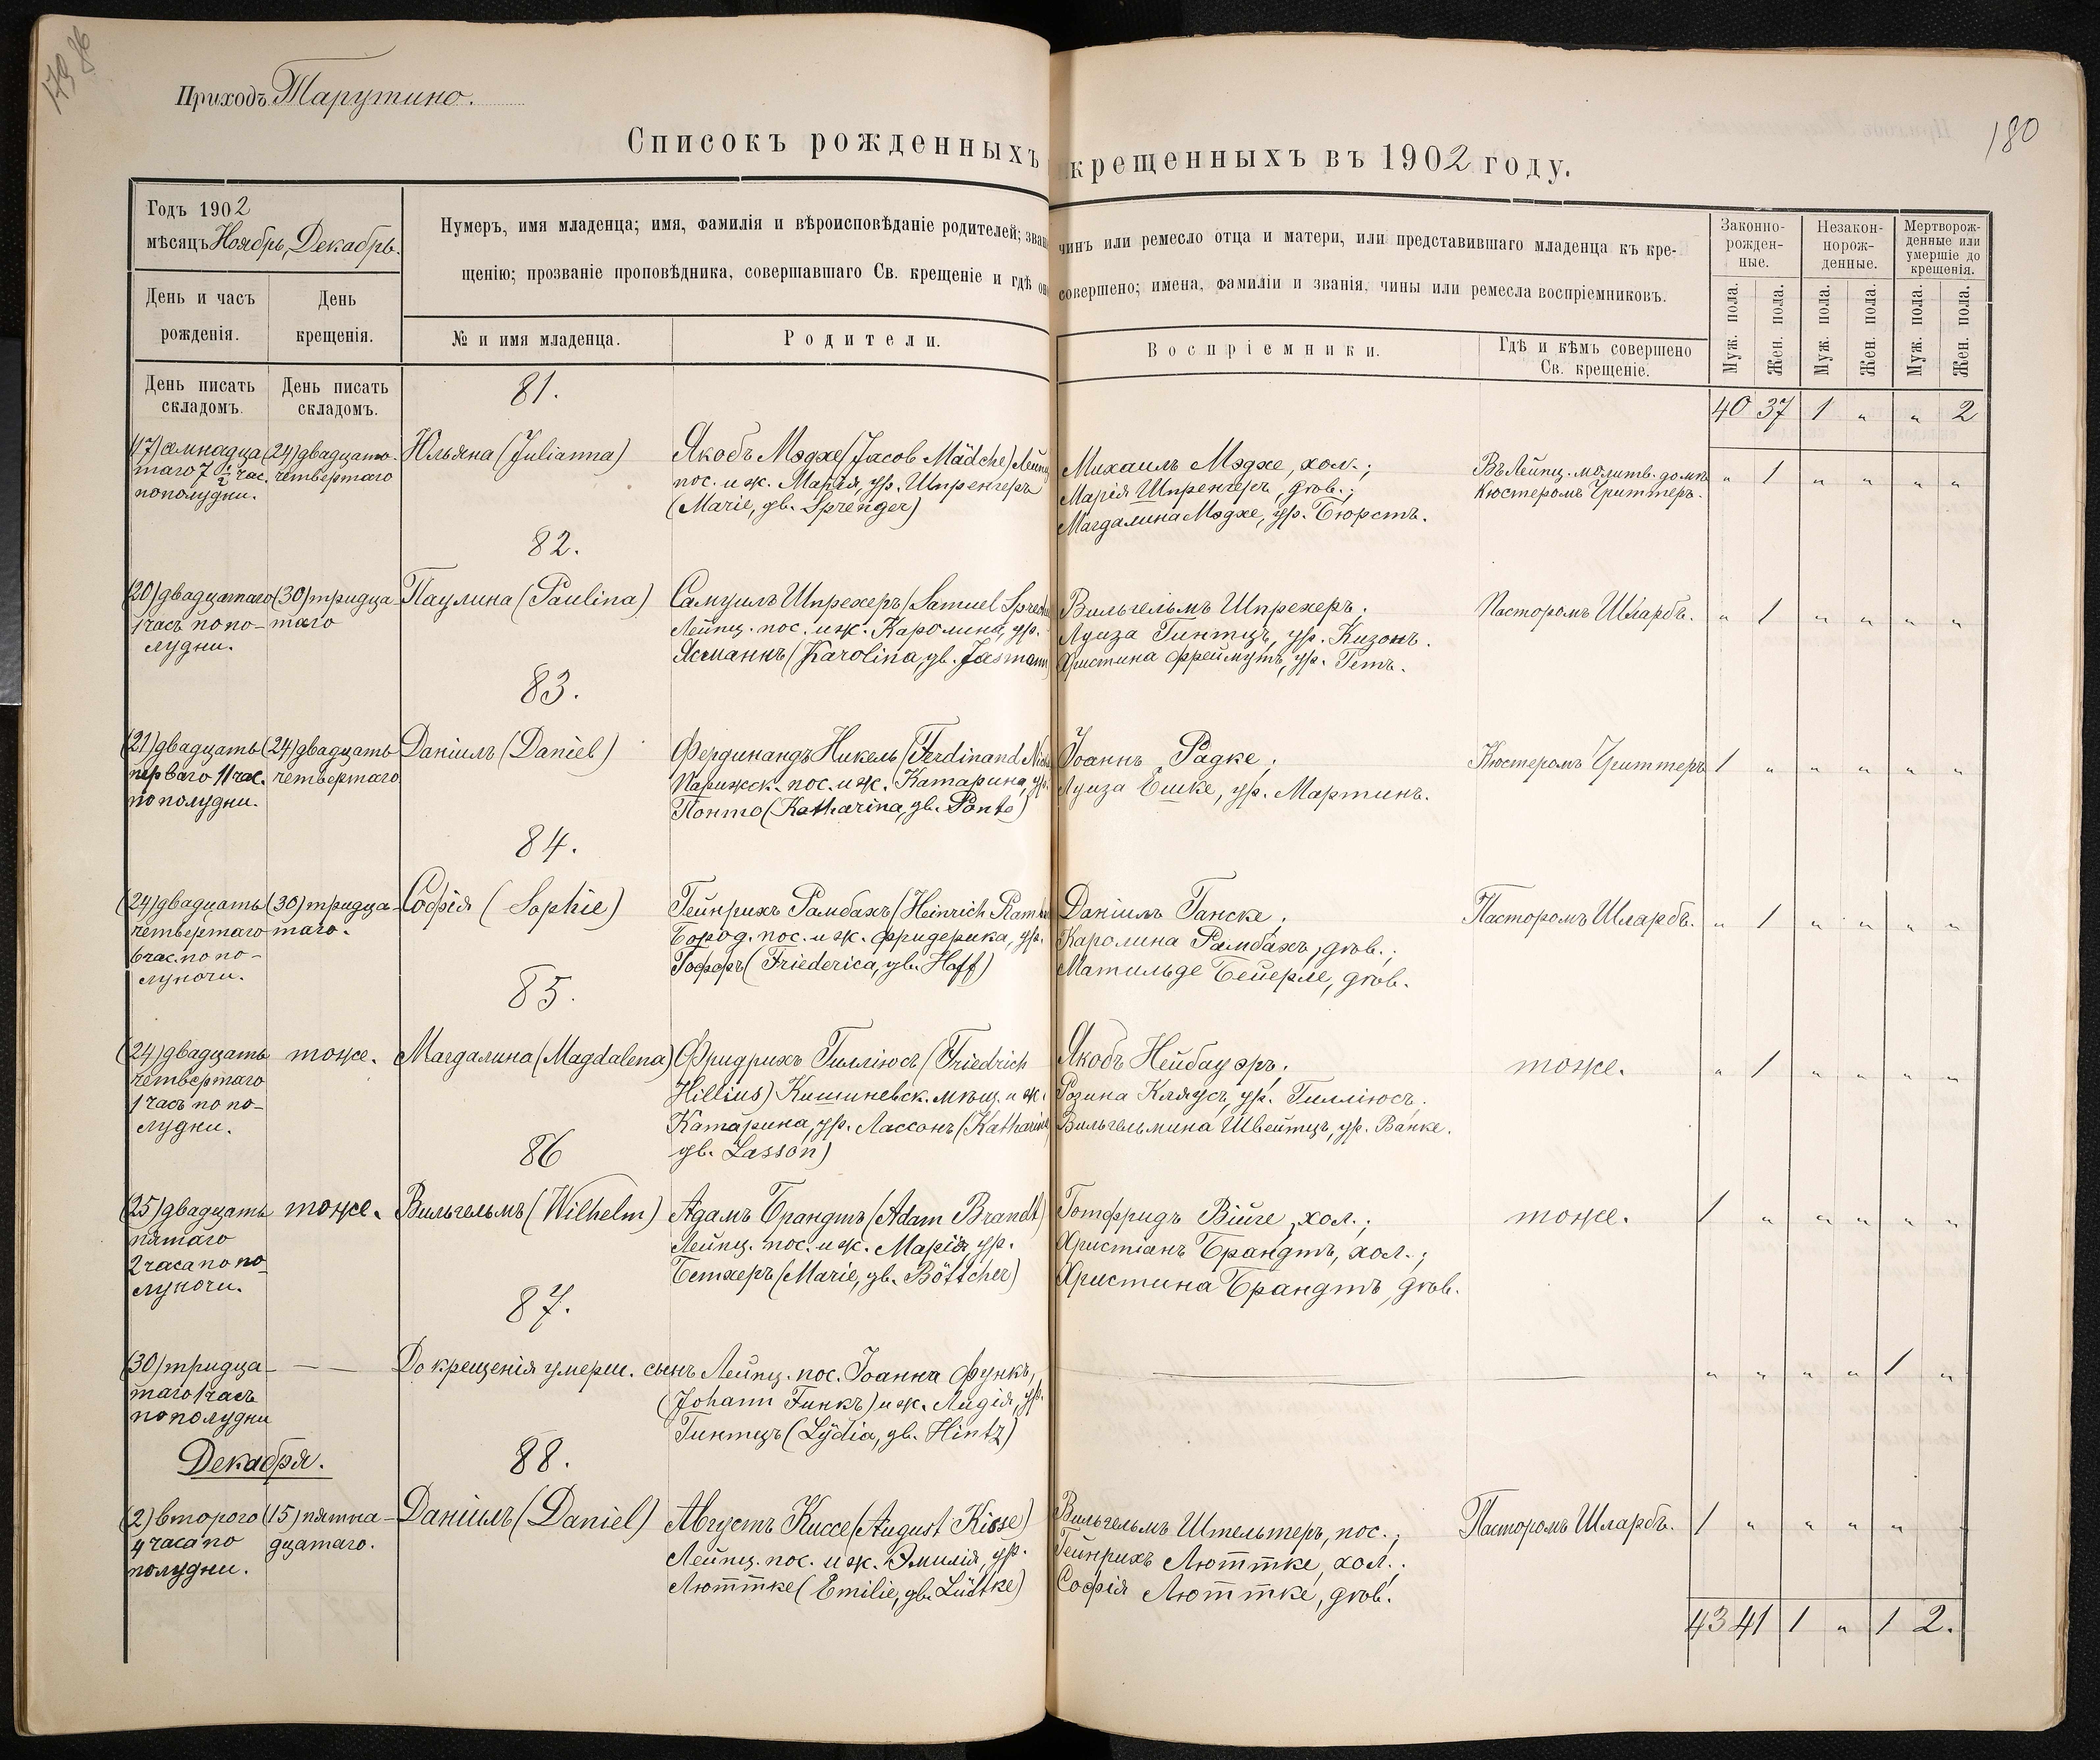 179 86
Приходъ Тарутино.
180
Списокъ рожденныхъ крещенныхъ въ 1902 году.
Годъ 1902
мѣсяцъ Ноябрь, Декабрь.
Нумеръ, имя младенца; имя, фамилія и вѣроисповѣданіе родителей; зва чинъ или ремесло отца и матери, или представившаго младенца къ кре-
щенію; прозваніе проповѣдника, совершавшаго Св. крещеніе и гдѣ он совершено; имена, фамиліи и званія, чины или ремесла воспріемниковъ.
Законно-рожден-ные.
Незакон-норож-денные.
Мертворож-денные или умершіе до крещенія.
День и часъ рожденія.
День крещенія.
№ и имя младенца.
Родители.
Воспріемники.
Гдѣ и кѣмъ совершено Св. крещеніе.
Муж. пола. Жен. пола. Муж. пола. Жен. пола. Муж. пола. Жен. пола.
День писать складомъ.
День писать складомъ.
40 37 1 " " 2
81.
(17) семнадца
таго 7 1/2 час.
пополудни.
(24) двадцать
четвертаго
Юльяна (Julianna)
Якобъ Мэдхе (Jacob Mädche) Лейпц
пос. и ж. Марія, ур. Шпренгеръ
(Marie, gb. Sprenger)
Михаилъ Мэдхе, хол.;
Марія Шпренгеръ, дѣв.;
Магдалина Мэдхе, ур. Бюрстъ.
Въ Лейпц. молитв. домѣ
Кюстеромъ Гриттеръ.
" 1 " " " "
82.
(20) двадцатаго
1 часъ попо-
лудни.
(30) тридца-
таго
Паулина (Paulina)
Самуилъ Шпрехеръ (Samuel Spreche
Лейпц. пос. и ж. Каролина, ур.
Ясманнъ (Karolina, gb. Jasmann)
Вильгельмъ Шпрехеръ;
Луиза Гинтцъ, ур. Кизонъ.
Христина Фреймутъ, ур. Гетъ.
Пасторомъ Шларбъ.
" 1 " " " "
83.
(21) двадцать
перваго 11 час.
пополудни.
(24) двадцать
четвертаго
Даніилъ (Daniel)
Фердинандъ Никель (Ferdinand Nick
Парижск. пос. и ж. Катарина, ур.
Понто (Katharina, gb. Ponto)
Іоаннъ Радке;
Луиза Ешке, ур. Мартинъ.
Кюстеромъ Гриттеръ
1 " " " " "
84.
(24) двадцать
четвертаго
6 час. по по-
луночи.
(30) тридца-
таго.
Софія (Sophie)
Гейнрихъ Рамбахъ (Heinrich Ramba
Бород. пос. и ж. Фридерика, ур.
Гоффъ (Friederica, gb. Hoff)
Даніилъ Ганске;
Каролина Рамбахъ, дѣв.;
Матильде Бейерле, дѣв.
Пасторомъ Шларбъ.
" 1 " " " "
85.
(24) двадцать
четвертаго
1 часъ по по-
лудни.
тоже.
Магдалина (Magdalena)
Фридрихъ Гилліюсъ (Friedrich
Hillius) Кишиневск. мѣщ. и ж.
Катарина, ур. Лассонъ (Katharina
gb. Lasson)
Якобъ Нейбауэръ;
Розина Клаусъ, ур. Гилліюсъ.
Вильгельмина Швейтцъ, ур. Ванке.
тоже.
" 1 " " " "
86
(25) двадцать
пятаго
2 часа по по-
луночи.
тоже.
Вильгельмъ (Wilhelm)
Адамъ Брандтъ (Adam Brandt)
Лейпц. пос. и ж. Марія, ур.
Бетхеръ (Marie, gb. Böttcher)
Готфридъ Війге, хол.;
Христіанъ Брандтъ, хол.;
Христина Брандтъ, дѣв.
тоже.
1 " " " " "
87.
(30) тридца-
таго 1 часъ
пополудни
До крещенія умерш. сынъ Лейпц. пос. Іоанна Функъ,
(Johann Funkъ) и ж. Лидія, ур.
Гинтцъ (Lydia, gb. Hintz)
" " " " 1 "
Декабря.
88.
(2) второго
4 часа по
полудни.
(15) пятна-
дцатаго.
Даніилъ (Daniel)
Августъ Киссе (August Kisse)
Лейпц. пос. и ж. Эмилія, ур.
Люттке (Emilie, gb. Lüttke)
Вильгельмъ Штельтеръ, пос.;
Гейнрихъ Люттке, хол.;
Софія Люттке, дѣв.
Пасторомъ Шларбъ.
1 " " " "
43 41 1 " 1 2.